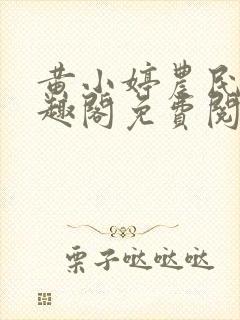 黄小婷農民
趣閣免費閱
栗子哒哒哒